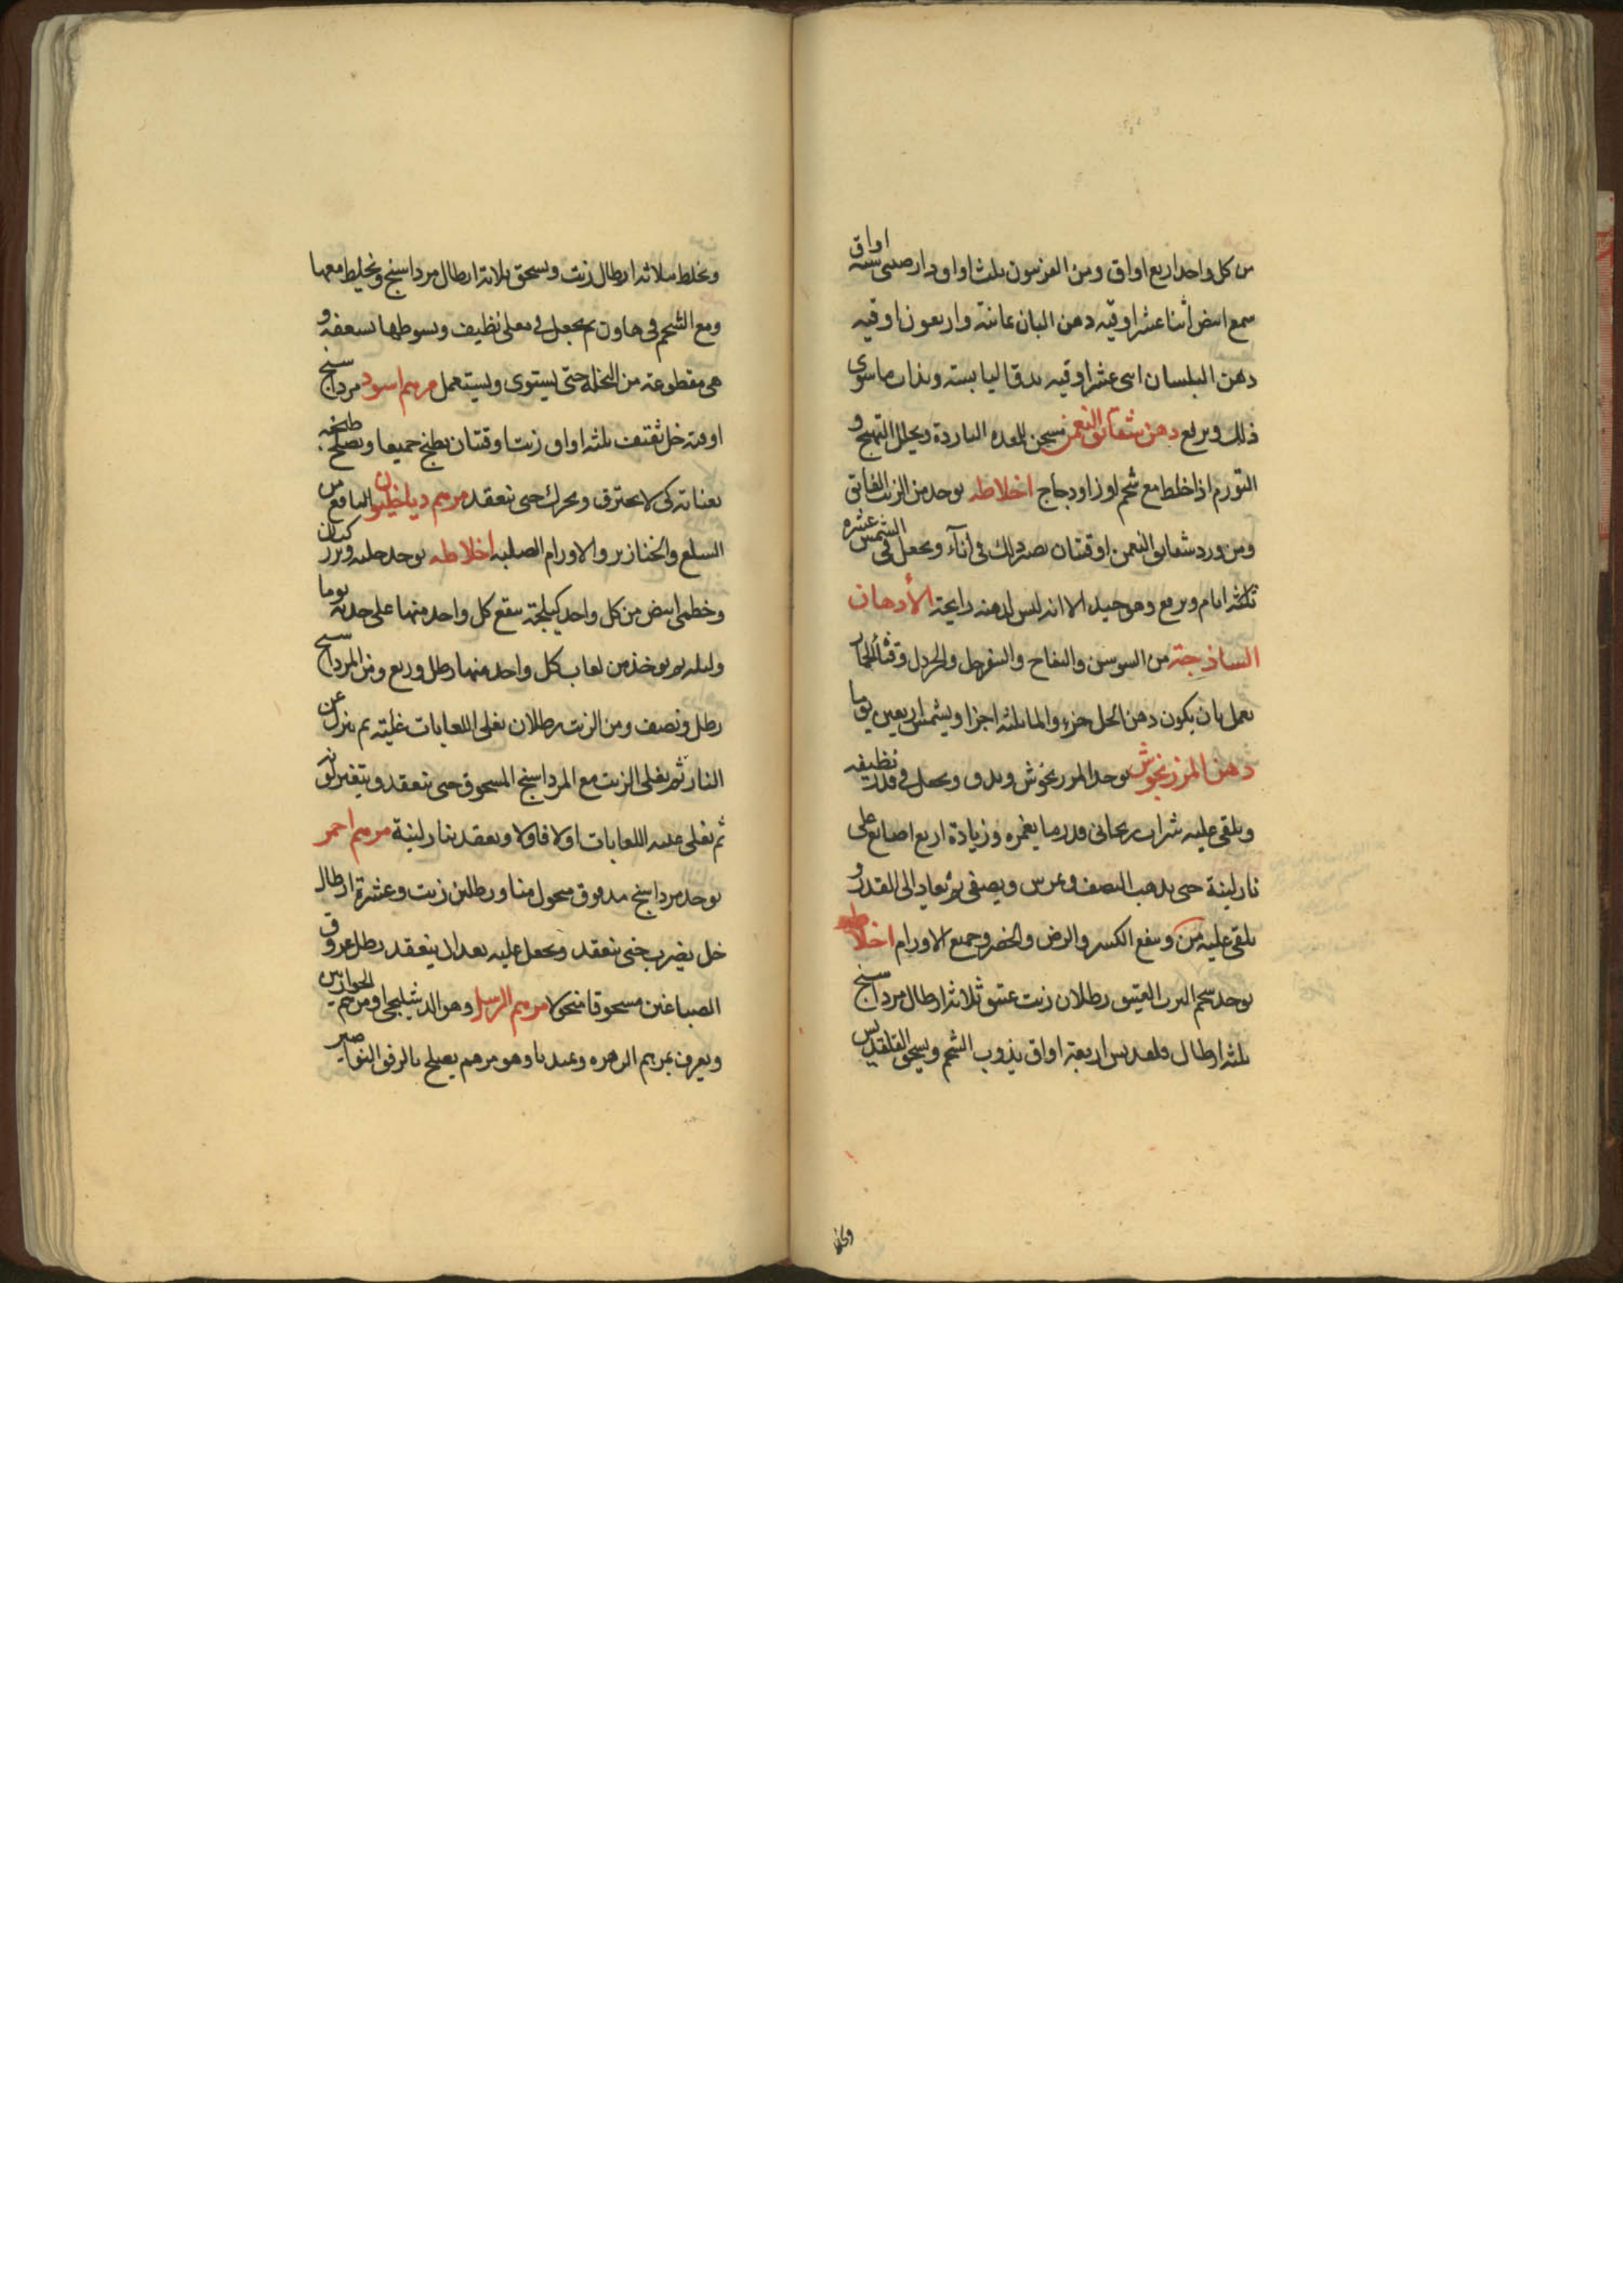 من كل واحد اربع اواق ومن الفربيون ثلث اواق دارصينى ستة اواق
شمع ابيض اثنا عشر اوقيه دهن البان ثمانية واربعون اوقيه
دهن البلسان اثنى عشر اوقيه يدق اليابسة ويذاب ما سوى
ذلك ويرفع دهن شقايق النعمن يسخن المعده الباردة ويحلل التهيج و
التورم اذا خلط مع شحم اوز او دجاج اخلاطه يوخذ من الزيت الفايق
ومن ورد شقايق النعمن اوقيتان يصير ذلك فى اناء ويجعل فى الشمس عشره
ثلثه ايام ويرفع وهو جيد الا انه ليس لدهنه رايحة الأدهان
الساذجة من السوسن والتفاح والسفرجل والخردل وقثاء الحمار
يعمل بان يكون دهن الحل جزء والماء ثلثه اجزا ويشمس اربعين يوما
دهن المرزنجوش يوخذ المرزنجوش ويدق ويجعل فى قدر نظيفه
ويلقى عليه شراب ريحانى قدر ما يغمره وزيادة اربع اصابع على
نار لينة حتى يذهب النصف ويمرس ويصفى ثم يعاد الى القدر و
يلقى عليه من وينفع الكسر والرض والخضر وجميع الاورام اخلاطه
يوخذ شحم الدب العتيق رطلان زيت عتيق ثلاثة ارطال مرداسنج
ثلثه ارطال قلقديس اربعة اواق يذوب الشحم ويسحق القلقديس
ويخلط بثلاثه ارطال زيت ويسحق ثلاثة ارطال مرداسنج ويخلط معها
ومع الشحم فى هاون ثم يجعل فى مغلى نظيف ويسوطها بسعفه و
هى مقطوعة من النخلة حتى يستوى ويستعمل مرهم اسود مرداسنج
اوقية خل ثقيف ثلثه اواق زيت اوقيتان يطبخ جميعا ويصلح طبخه
بعناية كى لا يحترق ويحرك حتى ينعقد مرهم دياخيلون النافع من
السلع والخنازير والاورام الصلبه اخلاطه يوخذ حلبه وبزر كتان
وخطمى ابيض من كل واحد كيلجة ينقع كل واحد منها على حدته يوما
وليله ثم يوخذ من لعاب كل واحد منها رطل وربع ومن المرداسنج
رطل ونصف ومن الزيت رطلان يغلى اللعابات غلية ثم ينزل عن
النار ثم يغلى الزيت مع المرداسنج المسحوق حتى ينعقد ويتغير لونه
ثم يغلى عليه اللعابات اولا فاولا ويعقد بنار لينة مرهم احمر
يوخذ مرداسنج مدقوق منخول منا ورطلين زيت وعشرة ارطال
خل يضرب حتى ينعقد ويجعل عليه بعد ان ينعقد رطل عروق
الصباغين مسحوقا منخولا مرهم الرسل وهو الدشليجا ومرهم الحواريين
ويعرف بمرهم الزهره وهو مرهم يصلح بالرفق النواصير